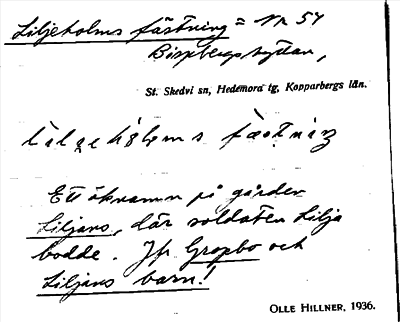 Liljeholms fästning = Nr 54
Bispbergshyttan,
St. Skedvi sn, Hedemora tg, Kopparbergs län.
Ett öknamn på gården
Liljans, där soldaten Lilja
bodde. Jfr Gropbo och
Liljans barn!
OLLE HILLNER, 1936.